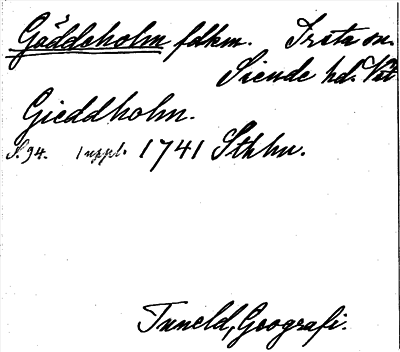 Gäddeholm fdkm. Irsta sn.
Siende hd. Vst
Gieddholm.
S. 94. suppl. 1741 Sthlm.
Tuneld, Geografi.